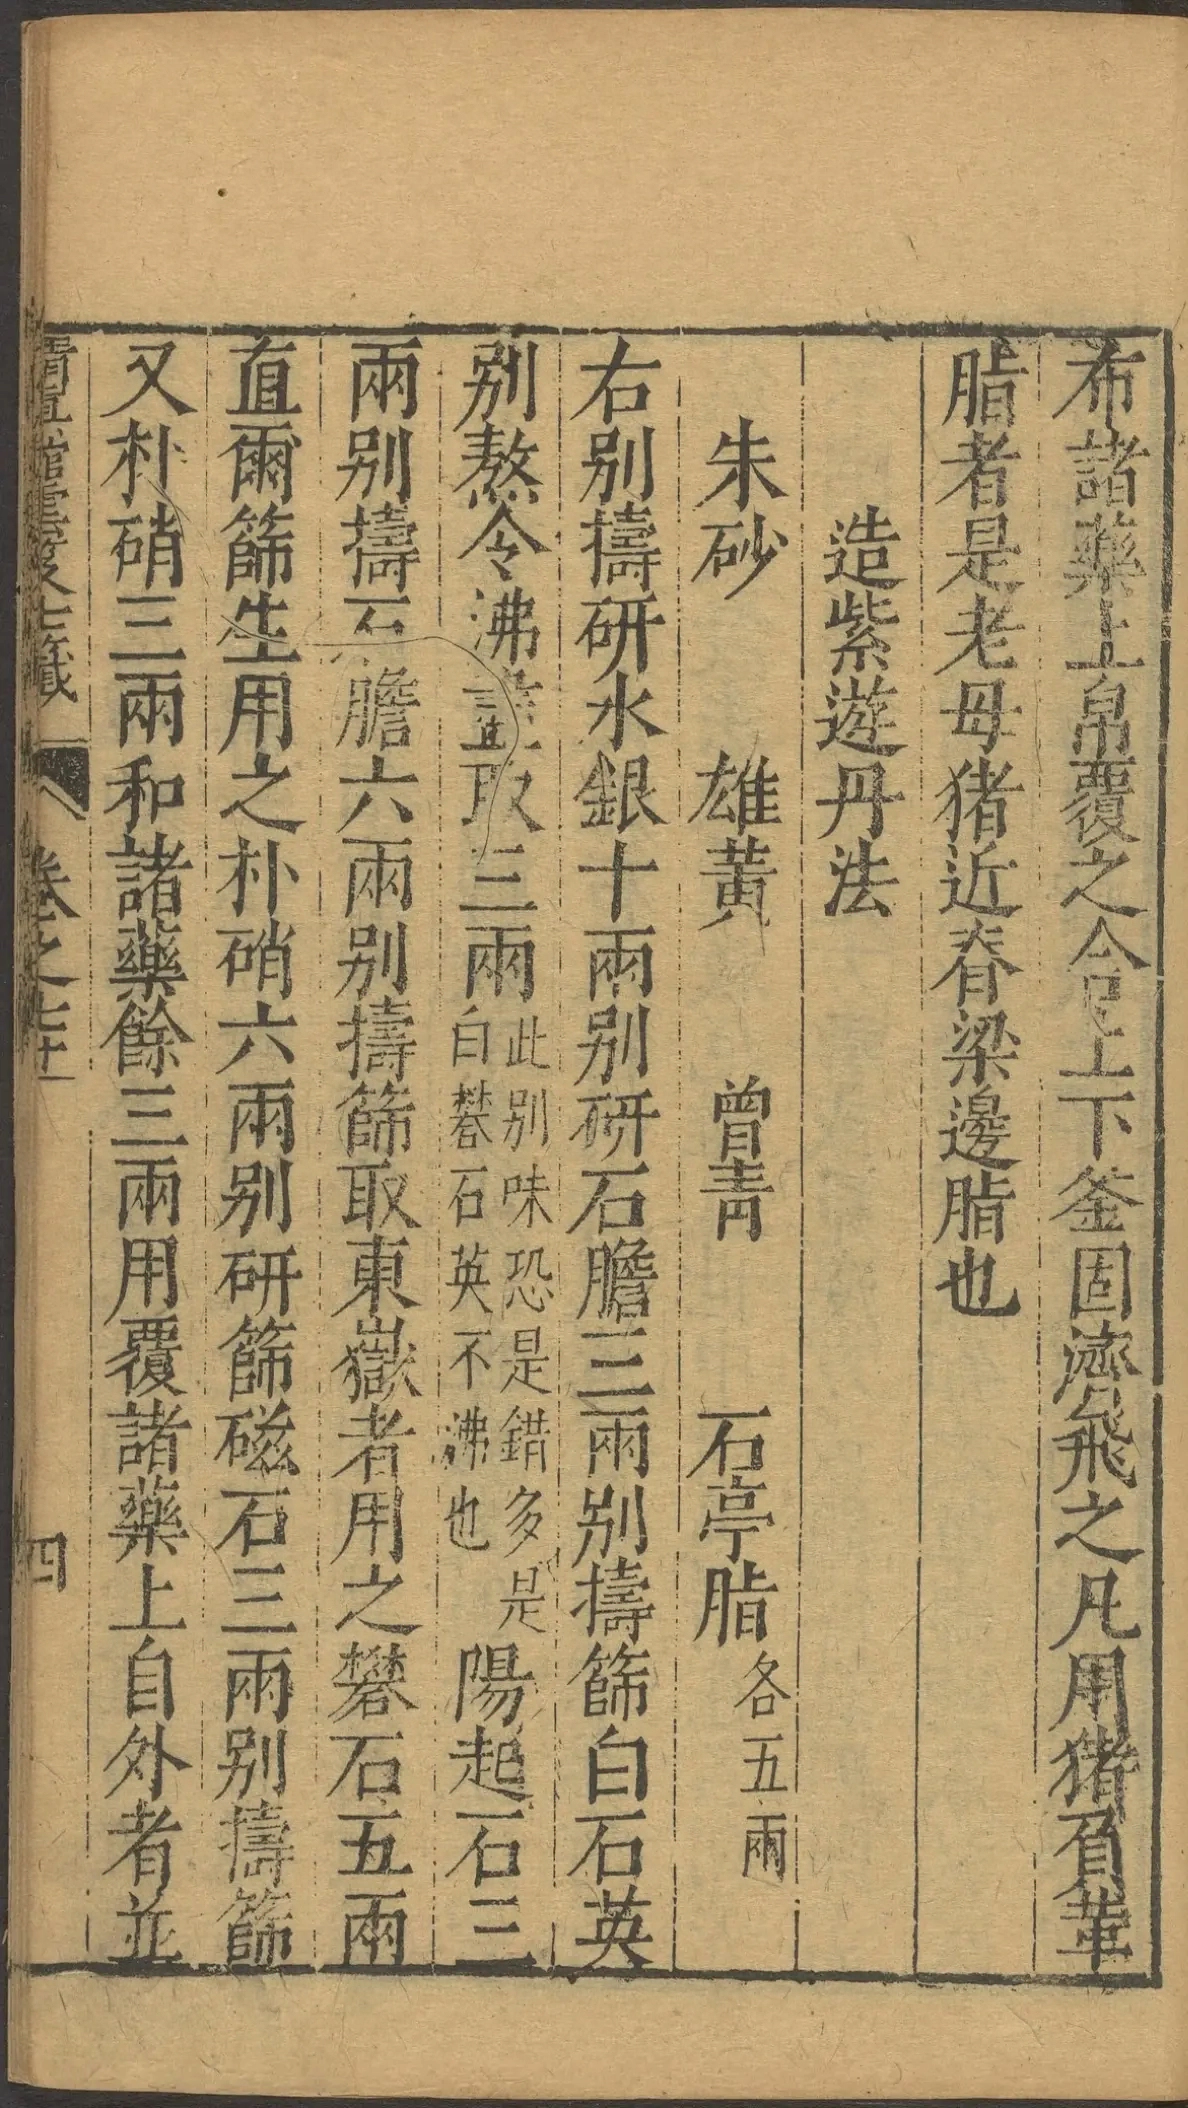 布諸藥上帛覆之合上下釜固濟飛之凡用猪負革
脂者是老母猪近脊梁邊脂也
造紫遊丹法
朱砂 雄黃 曾青 石亭脂各五兩
右別擣研水銀十兩別研石膽三兩別擣篩白石英
別熬令沸取三兩此別味恐是錯多是白礬石英不沸也陽起石三
兩別擣石膽六兩別擣篩取東嶽者用之礬石五兩
直爾篩生用之朴硝六兩別研篩磁石三兩別擣篩
又朴硝三兩和諸藥餘三兩用覆諸藥上自外者並
清真館雲笈七籤 卷之七十一 四